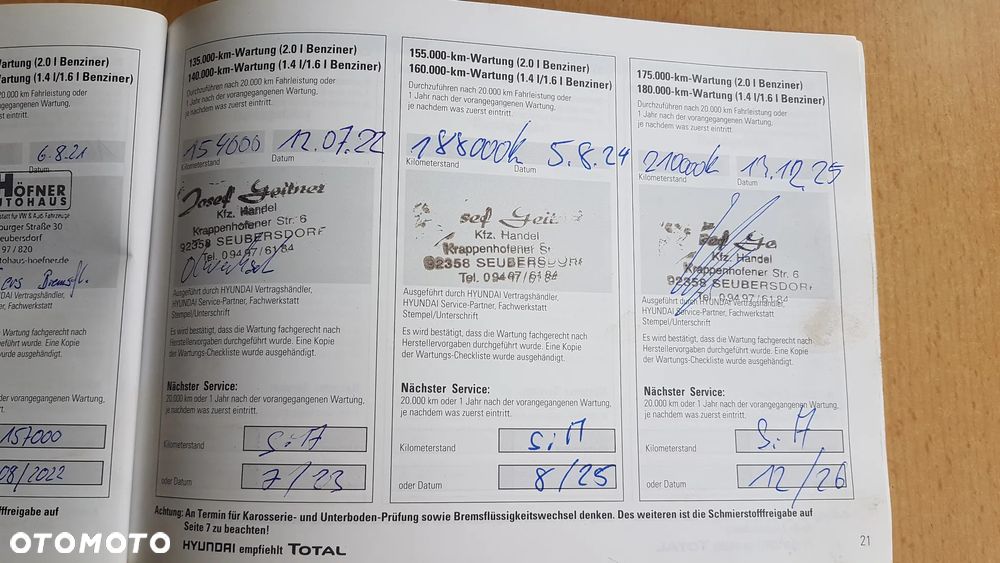 artung (2.0 l Benziner)
artung (1.4 l/1.6 l Benziner)
20.000 km Fahrleistung oder
gegangenen Wartung,
eintritt.
6.8.21
Datum
HÖFNER
AUTOHAUS
statt für VW & Audi-Fahrzeuge
burger Straße 30
eubersdorf
97 / 820
tohaus-hoefner.de
DAI Vertragshändler,
artner, Fachwerkstatt
Wartung fachgerecht nach
geführt wurde. Eine Kopie
wurde ausgehändigt.
der vorangegangenen Wartung,
157000
08/2022
offfreigabe auf
135.000-km-Wartung (2.0 l Benziner)
140.000-km-Wartung (1.4 l/1.6 l Benziner)
Durchzuführen nach 20.000 km Fahrleistung oder
1 Jahr nach der vorangegangenen Wartung,
je nachdem was zuerst eintritt.
154000 12.07.22
Kilometerstand Datum
Josef Geitner
Kfz. Handel
Krappenhofener Str. 6
92358 SEUBERSDORF
Tel. 09497/6184
Ausgeführt durch HYUNDAI Vertragshändler,
HYUNDAI Service-Partner, Fachwerkstatt
Stempel/Unterschrift
Es wird bestätigt, dass die Wartung fachgerecht nach
Herstellervorgaben durchgeführt wurde. Eine Kopie
der Wartungs-Checkliste wurde ausgehändigt.
Nächster Service:
20.000 km oder 1 Jahr nach der vorangegangenen Wartung,
je nachdem was zuerst eintritt.
Kilometerstand
oder Datum 7/23
155.000-km-Wartung (2.0 l Benziner)
160.000-km-Wartung (1.4 l/1.6 l Benziner)
Durchzuführen nach 20.000 km Fahrleistung oder
1 Jahr nach der vorangegangenen Wartung,
je nachdem was zuerst eintritt.
188000k 5.8.24
Kilometerstand Datum
sef Geit
Kfz. Handel
Krappenhofener S
92358 SEUBERSDORF
Tel. 09497/6184
Ausgeführt durch HYUNDAI Vertragshändler,
HYUNDAI Service-Partner, Fachwerkstatt
Stempel/Unterschrift
Es wird bestätigt, dass die Wartung fachgerecht nach
Herstellervorgaben durchgeführt wurde. Eine Kopie
der Wartungs-Checkliste wurde ausgehändigt.
Nächster Service:
20.000 km oder 1 Jahr nach der vorangegangenen Wartung,
je nachdem was zuerst eintritt.
Kilometerstand
oder Datum 8/25
175.000-km-Wartung (2.0 l Benziner)
180.000-km-Wartung (1.4 l/1.6 l Benziner)
Durchzuführen nach 20.000 km Fahrleistung oder
1 Jahr nach der vorangegangenen Wartung,
je nachdem was zuerst eintritt.
210000k 13.12.25
Kilometerstand Datum
sef Gei
Kfz. Handel
Krappenhofener Str. 6
92358 SEUBERSDORF
Tel. 09497/6184
Ausgeführt durch HYUNDAI Vertragshändler,
HYUNDAI Service-Partner, Fachwerkstatt
Stempel/Unterschrift
Es wird bestätigt, dass die Wartung fachgerecht nach
Herstellervorgaben durchgeführt wurde. Eine Kopie
der Wartungs-Checkliste wurde ausgehändigt.
Nächster Service:
20.000 km oder 1 Jahr nach der vorangegangenen Wartung,
je nachdem was zuerst eintritt.
Kilometerstand
oder Datum 12/26
Achtung: An Termin für Karosserie- und Unterboden-Prüfung sowie Bremsflüssigkeitswechsel denken. Des weiteren ist die Schmierstofffreigabe auf
Seite 7 zu beachten!
HYUNDAI empfiehlt TOTAL
21
OTOMOTO